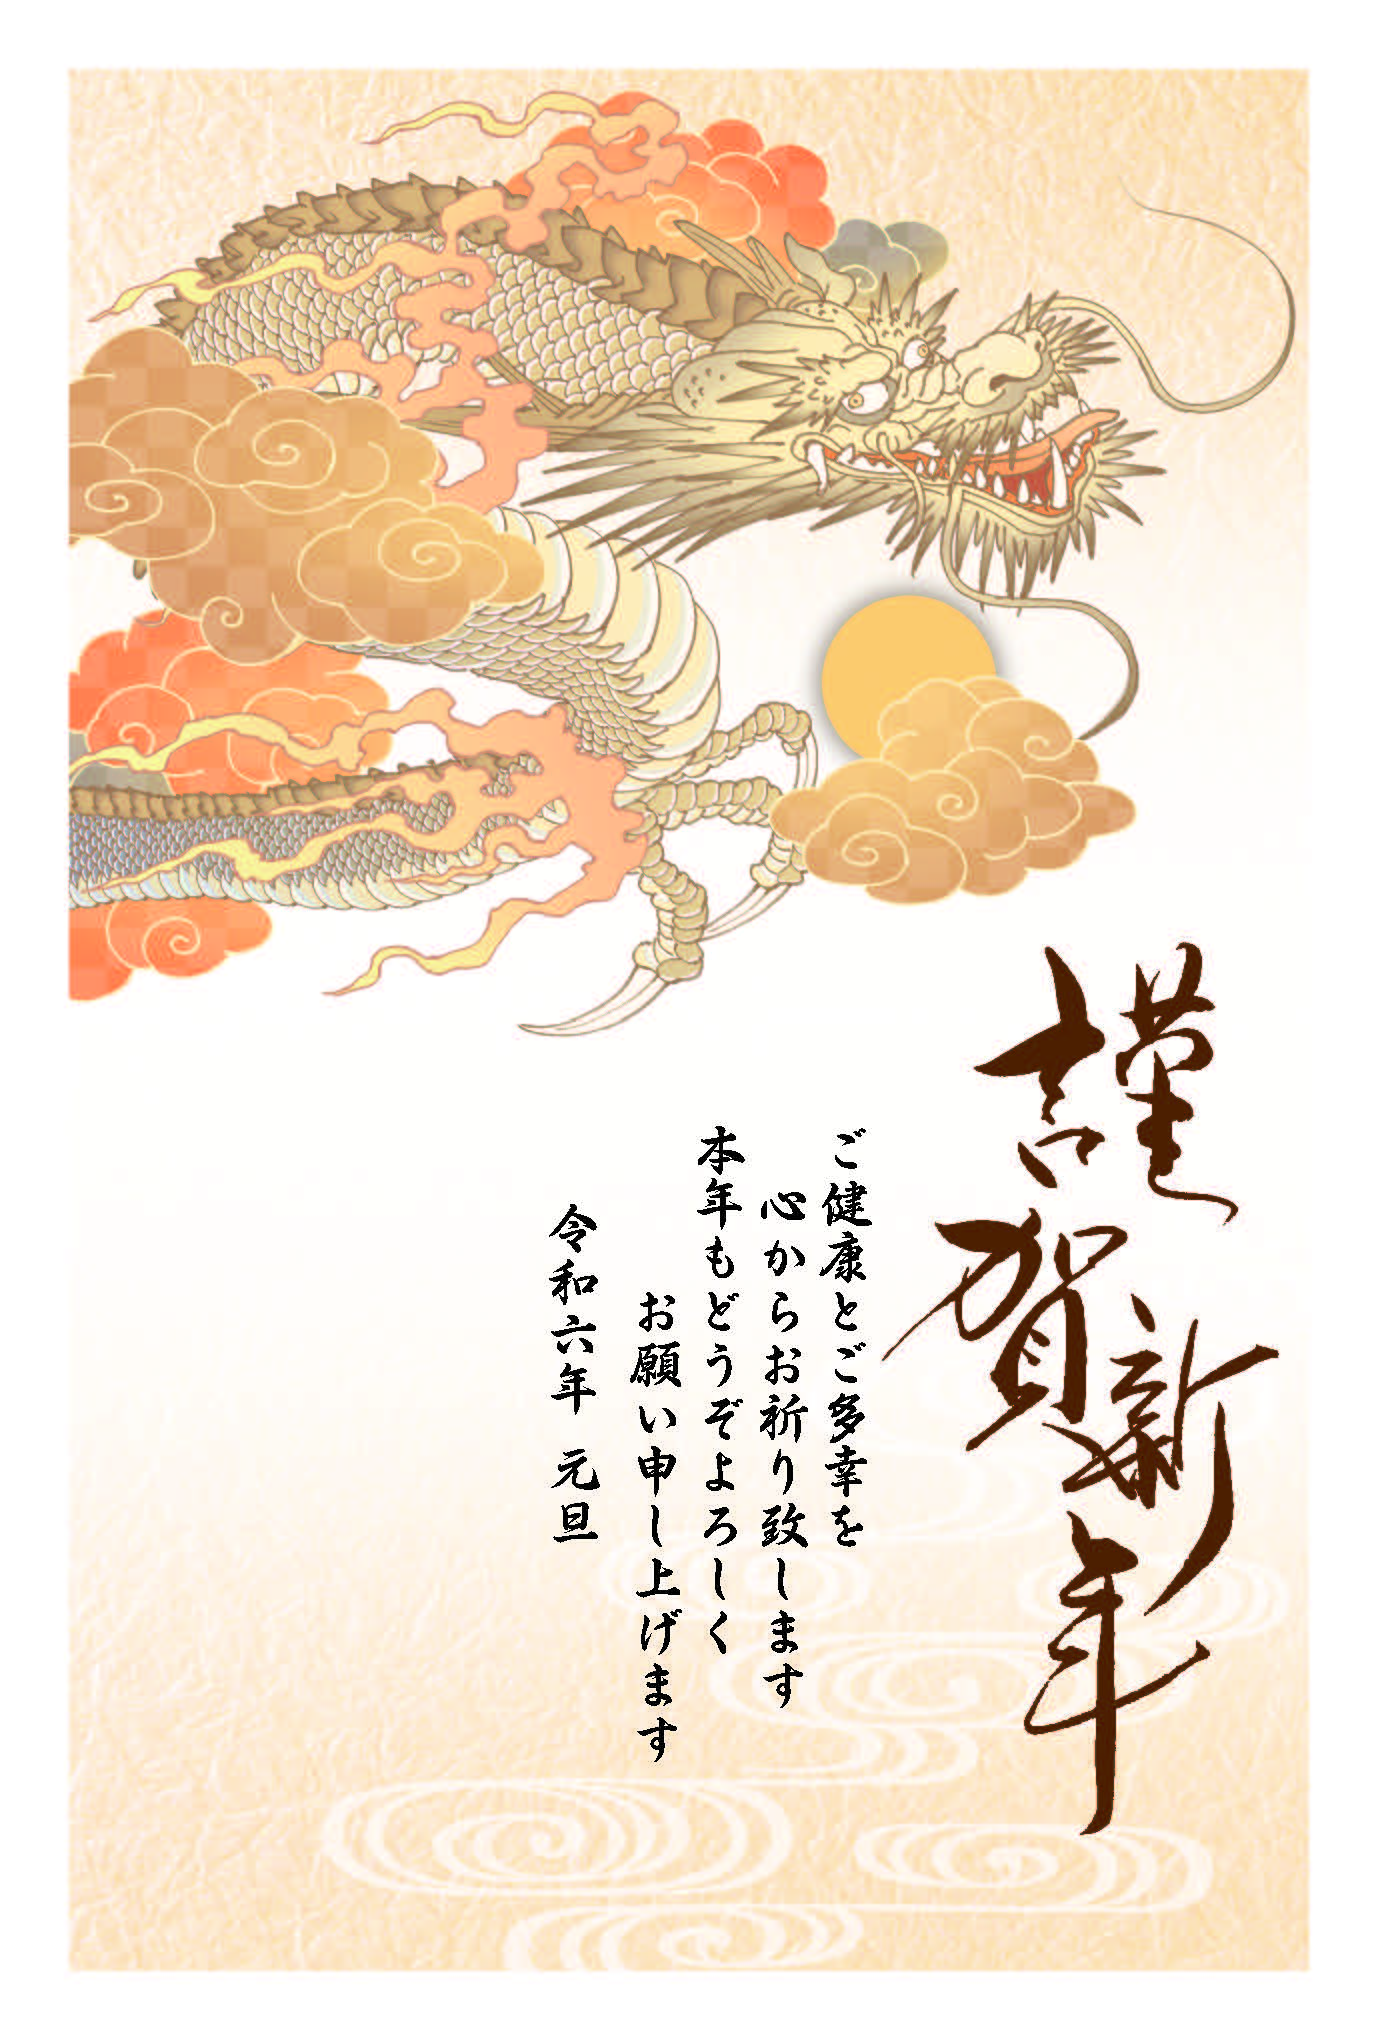 謹賀新年
ご健康とご多幸を
心からお祈り致します
本年もどうぞよろしく
お願い申し上げます
令和六年 元旦